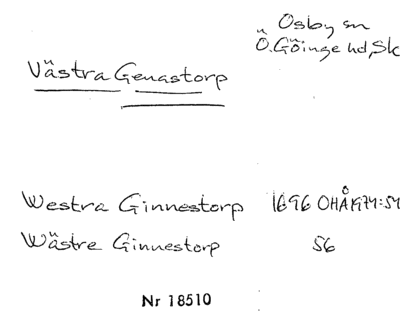 Osby sn
Ö. Göinge hd, Sk
Västra Genastorp
Westra Ginnestorp 1696 OHÅ 1974:54
Wästre Ginnestorp 56
Nr 18510